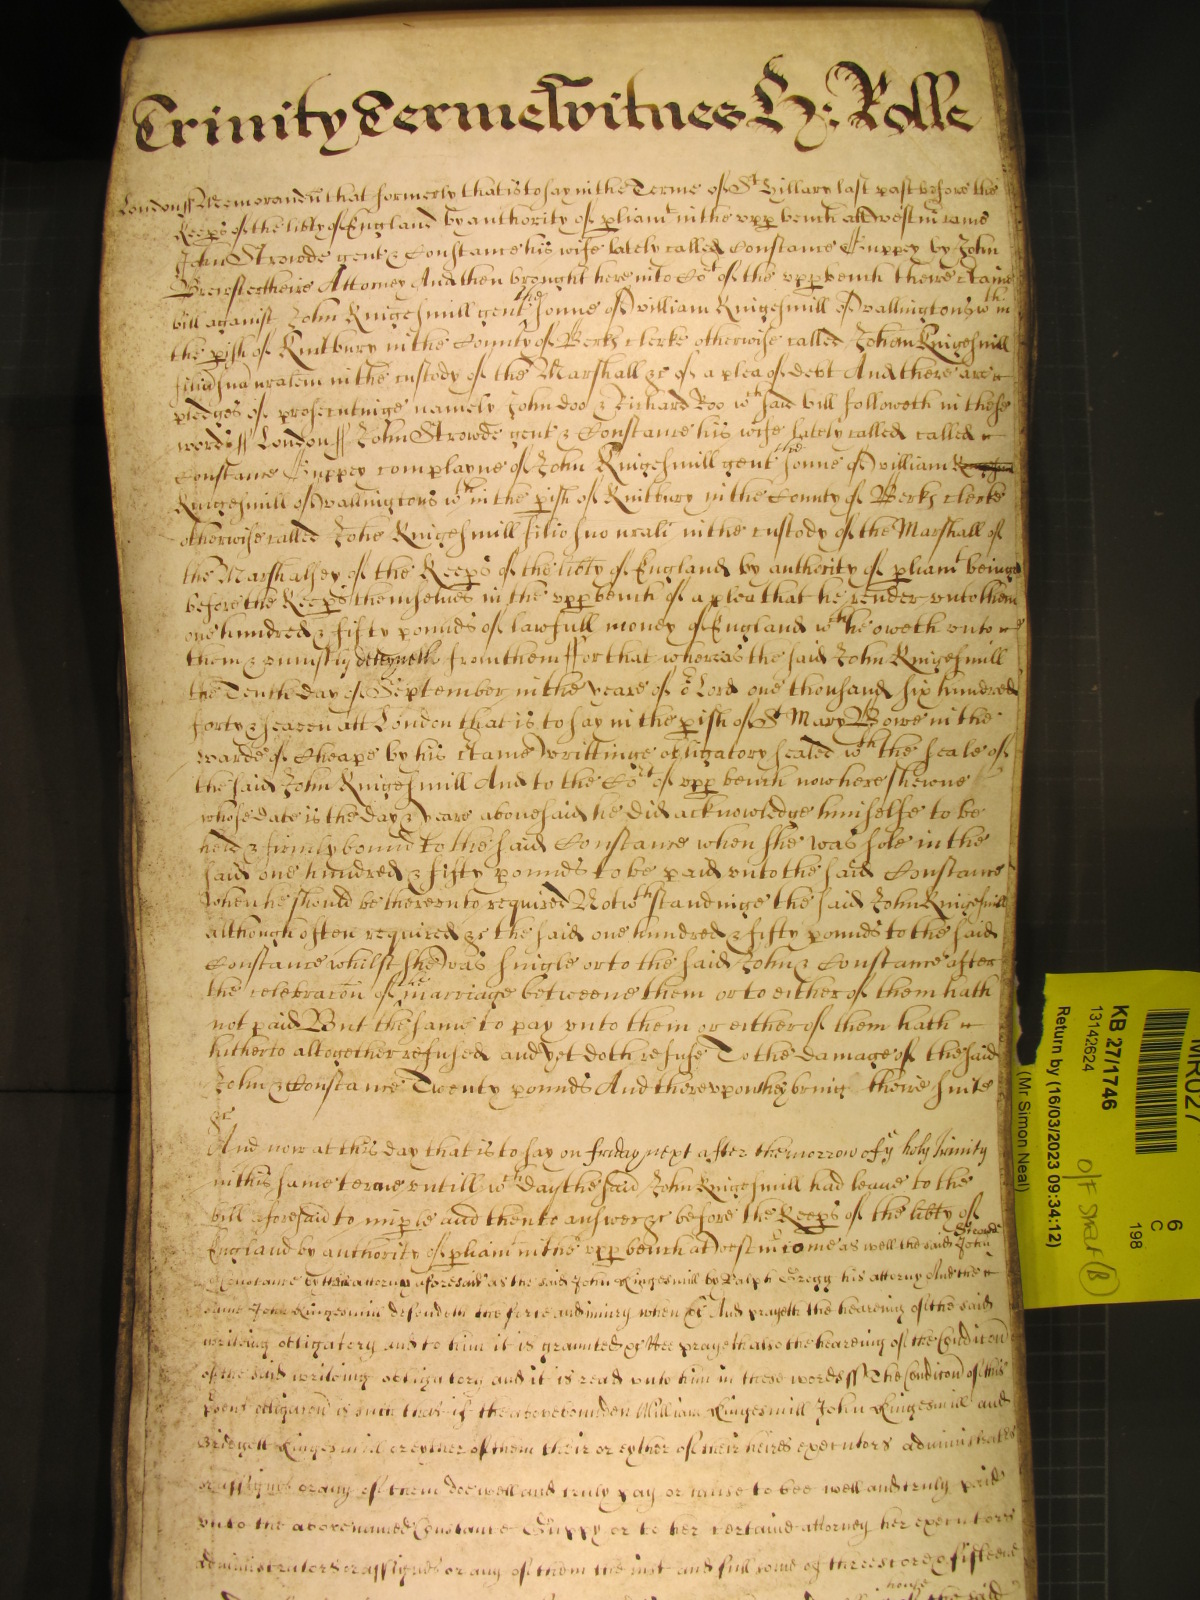 Trinity Terme Witnes H: Rolle
London ss Memorandu that formerly that is to say in the Terme of St Hillary last past before the
Keeps of the libty of England by authority of pliamt in the upp bench att Westm came
John Strowde gent & Constance his wife lately called Constance Guppey by John
Brewster theire Attorney And then brought here into Cot of the upp bench there a certaine
bill against John Kingesmill gent the sonne of William Kingesmill of Wallingtons wth in
the pish of Kintbury in the County of Berks clerke otherwise called Johem Kingesmill
filiu suu nralem in the custody of the Marshall &c of a plea of debt And there are
pledges of prosecutinge namely John Doo & Richard Roo wch said bill followeth in these
words ss London ss John Strowde gent & Constance his wife lately called called
Constance Guppey complayne of John Kingesmill gent the sonne of William
Kingesmill of Wallingtons wth in the pish of Kintbury in the County of Berks clerke
otherwise called Johe Kingesmill filio suo nrali in the custody of the Marshall of
the Marshalsey of the Keeps of the libty of England by authority of pliamt beinge
before the Keeps themselves in the upp bench of a plea that he render unto them
one hundred & fifty pounds of lawfull money of England wch he oweth unto
them & uniustly deteyneth from them ss For that whereas the said John Kingesmill
the Tenth day of September in the yeare of or Lord one thousand six hundred
forty & seaven att London that is to say in the pish of St Mary Bowe in the
warde of Cheape by his ctaine writtinge obligatory sealed wth the seale of
the said John Kingesmill And to the Cot of upp bench now here shewne
whose date is the day & yeare abovesaid he did acknowledge himselfe to be
held & firmly bound to the said Constance when she was sole in the
said one hundred & fifty pounds to be paid unto the said Constance
when he should be thereunto required Notwthstandinge the said John Kingesmill
although often required &c the said one hundred & fifty pounds to the said
Constance whilst she was single or to the said John & Constance after
the celebracon of marriage betweene them or to either of them hath
not paid But the same to pay unto them or either of them hath
hitherto altogether refused and yet doth refuse To the damage of the said
John & Constance Twenty pounds And thereupon they bring theire suite
&c
And now at this day that is to say on friday next after the morrow of ye holy Trinity
in this same terme untill wch day the said John Kingesmill had leave to the
bill aforesaid to imple and then to answer &c before the Keeps of the libty of
England by authority of pliamt in the upp bench at Westm come as well the said John Strowde
& Constance by their attorny aforesaid as the said John Kingesmill by Ralph Gregg his attorny And the
same John Kingesmill defendeth the force and iniury when &c And prayeth the hearing of the said
writing obligatory and to him it is graunted &c Hee prayeth also the hearing of the Condicon
of the said writing obligatory and it is read unto him in these words ss The Condicon of this
psent obligacon is such that if the abovebounden William Kingesmill John Kingesmill and
Bridgett Kingesmill or eyther of them their or eyther of their heires executors administrators
or assignes or any of them doe well and truly pay or cause to bee well and truly paid
unto the abovenamed Constance Guppy or to her certaine attorney her executors
administrators or assignes or any of them the iust and full some of threescore & fifteene
house
the said
MR027
KB 27/1746
13142624
Return by (16/03/2023 09:34:12)
(Mr Simon Neal)
6
C
198
O/F Shelf B